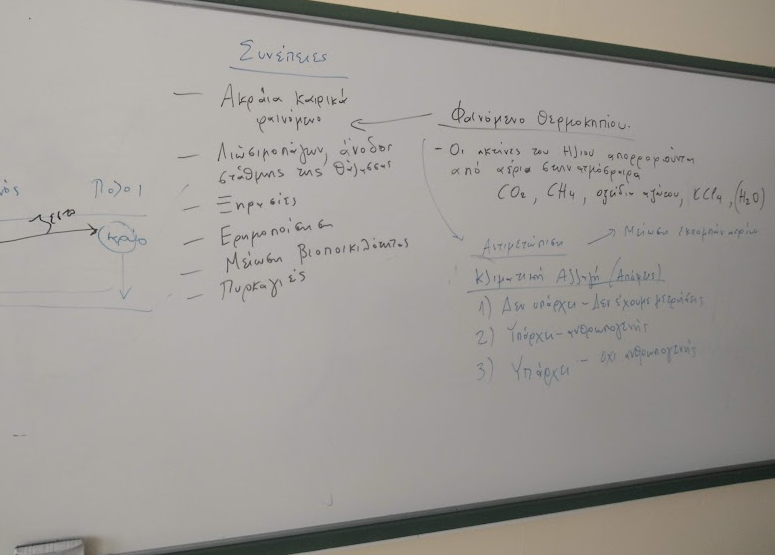 Συνέπειες
— Ακραία καιρικά
φαινόμενο
— Λιώσιμο πάγων, άνοδος
στάθμης της θάλασσας
— Ξηρασίες
— Ερημοποίηση
— Μείωση βιοποικιλότητας
— Πυρκαγιές
Φαινόμενο Θερμοκηπίου.
- Οι ακτίνες του Ηλιου απορροφούνται
από αέρια στην ατμόσφαιρα
CO₂, CH₄, οξείδια αζώτου, CCl₄, (H₂O)
Αντιμετώπιση
Μείωση εκπομπών αερίων
Κλιματική Αλλαγή (Απόψεις)
1) Δεν υπάρχει - Δεν έχουμε μετρήσεις
2) Υπάρχει - ανθρωπογενής
3) Υπάρχει - όχι ανθρωπογενής
Πόλοι
ζεστο
κρύο